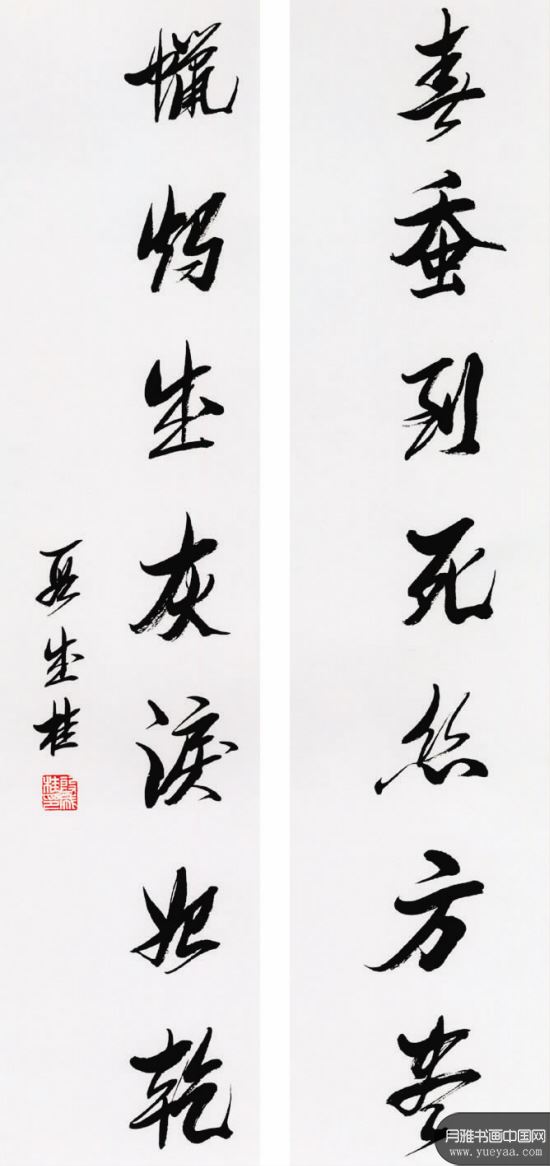 春蚕到死丝方尽
蠟炬成灰淚始乾
殷成桂
月雅书画中国网
www.yueyaa.com